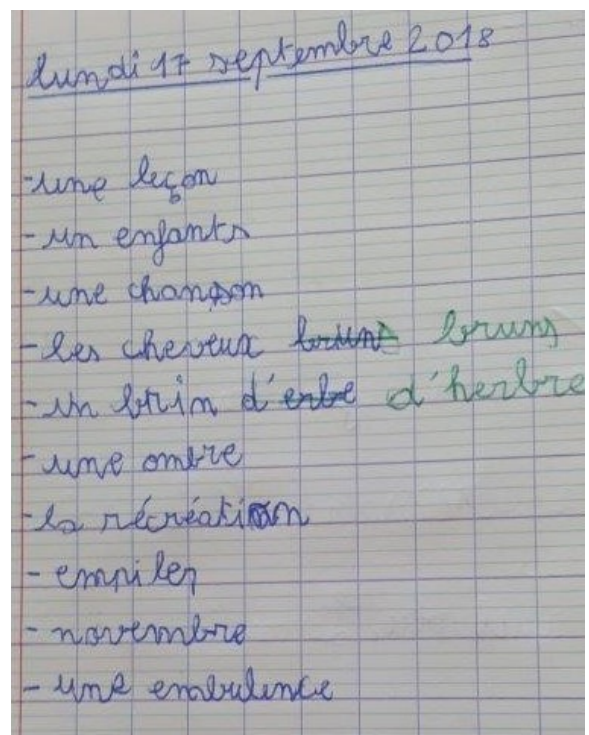 lundi 17 septembre 2018
- une leçon
- un enfants
- une chanson
- les cheveux brun bruns
- un brin d'erbe d'herbre
- une ombre
- la récréation
- empiler
- novembre
- une embulence